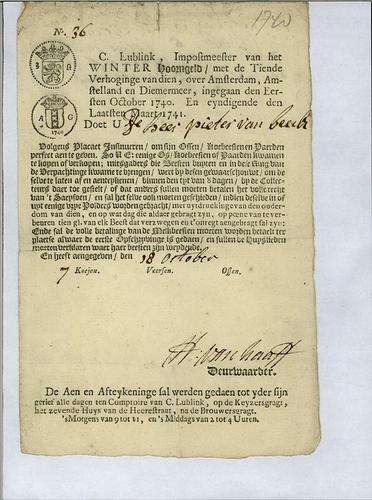 Nº. 36
1740
C. Lublink, Impostmeester van het
WINTER Hoorngeld / met de Tiende
Verhoginge van dien, over Amsterdam, Am-
stelland en Diemermeer, ingegaan den Eer-
sten October 1740. En eyndigende den
Laatsten Maart 1741.
Doet U De heer pieter van beeck
Volgens Placaet Insinueren / om sijn Ossen / Koebeesten en Paerden
perfect aen te geven. So U E: eenige Os / Koebeesten of Paerden quamen
te kopen of verkopen; mitsgaders die Beesten buyten en in de Kring van
de Verpachtinge quame te brengen / wert by desen gewaerschouwt / om de
selve te laten af en aentekenen / binnen den tijt van 8 dagen / by de Collec-
teurs daer toe gestelt / of dat anders sullen moeten betalen het volle recht
van 't Saeysoen / en sal het selve ook moeten geschieden / indien deselve in of
uyt eenige vrye Polders worden gebracht / met uytdruckinge van den ouder-
dom van dien / en op wat dag die aldaer gebragt zyn, op poene van te ver-
beuren tien gl. van elk Beest dat verzwegen en t'onregt aengebragt sal zyn:
Ende sal de volle betalinge van de Melkbeesten moeten worden betaelt ter
plaetse alwaer de eerste Opschryvinge is gedaen / en sullen de Huyslieden
moeten verklaren waer haer beesten zijn
En heeft aengegeven / den 18 october
7 Koejen. Veersen. Ossen.
Deurwaarder.
De Aen en Afteykeninge sal werden gedaen tot yder sijn
gerief alle dagen ten Comptoire van C. Lublink, op de Keyzersgragt,
het zevende Huys van de Heerestraat, na de Brouwersgragt.
's Morgens van 9 tot 11, en 's Middags van 2 tot 4 Uren.